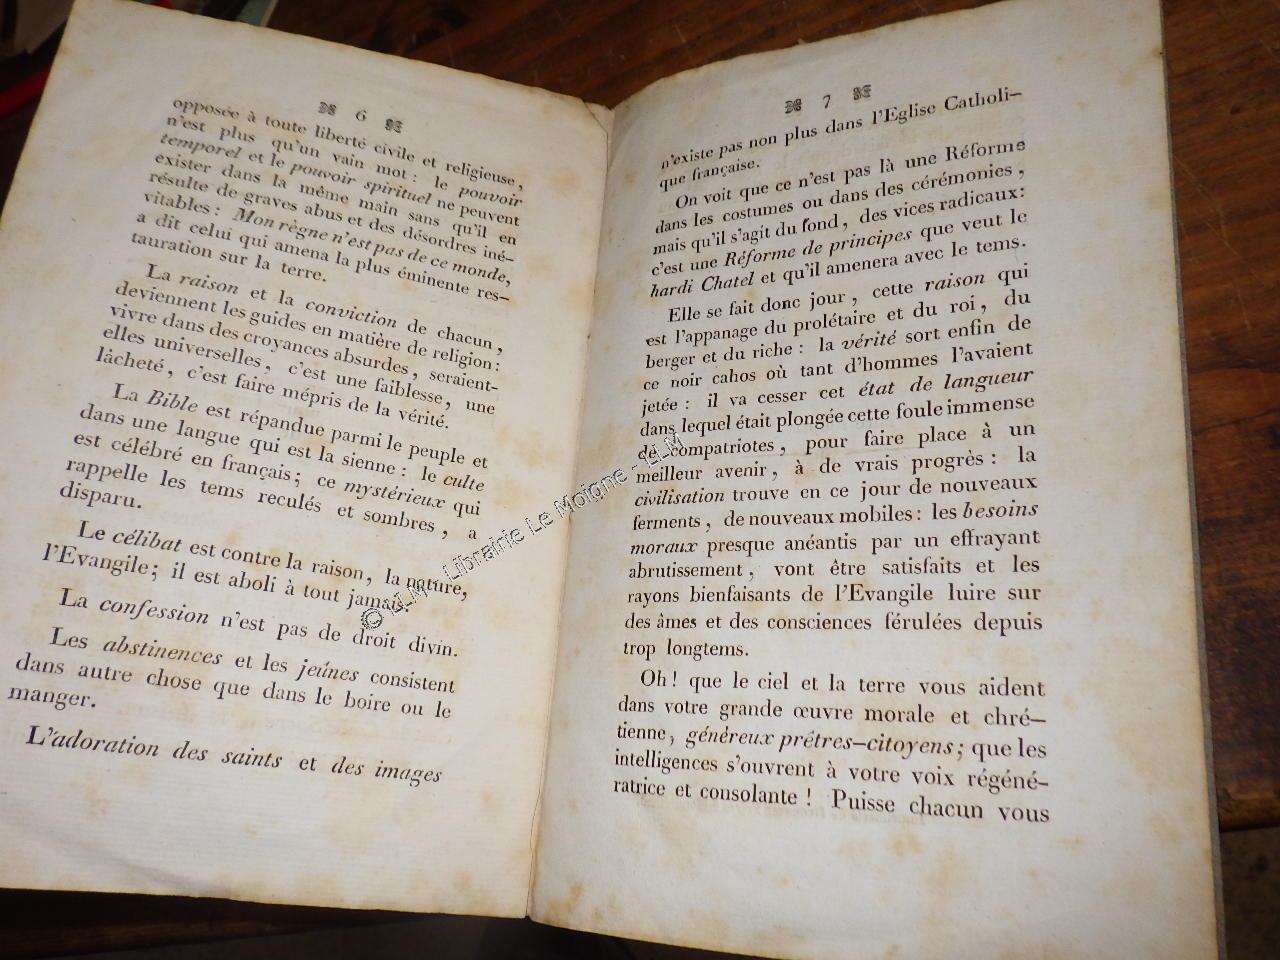 6
opposée à toute liberté civile et religieuse,
n'est plus qu'un vain mot : le pouvoir
temporel et le pouvoir spirituel ne peuvent
exister dans la même main sans qu'il en
résulte de graves abus et des désordres iné-
vitables : Mon règne n'est pas de ce monde,
a dit celui qui amena la plus éminente res-
tauration sur la terre.
La raison et la conviction de chacun,
deviennent les guides en matière de religion:
vivre dans des croyances absurdes, seraient-
elles universelles, c'est une faiblesse, une
lâcheté, c'est faire mépris de la vérité.
La Bible est répandue parmi le peuple et
dans une langue qui est la sienne : le culte
est célébré en français; ce mystérieux qui
rappelle les tems reculés et sombres, a
disparu.
Le célibat est contre la raison, la nature,
l'Evangile; il est aboli à tout jamais.
La confession n'est pas de droit divin.
Les abstinences et les jeûnes consistent
dans autre chose que dans le boire ou le
manger.
L'adoration des saints et des images
7
n'existe pas non plus dans l'Eglise Catholi-
que française.
On voit que ce n'est pas là une Réforme
dans les costumes ou dans des cérémonies,
mais qu'il s'agit du fond, des vices radicaux:
c'est une Réforme de principes que veut le
hardi Chatel et qu'il amenera avec le tems.
Elle se fait donc jour, cette raison qui
est l'appanage du prolétaire et du roi, du
berger et du riche : la vérité sort enfin de
ce noir cahos où tant d'hommes l'avaient
jetée : il va cesser cet état de langueur
dans lequel était plongée cette foule immense
de compatriotes, pour faire place à un
meilleur avenir, à de vrais progrès : la
civilisation trouve en ce jour de nouveaux
ferments, de nouveaux mobiles : les besoins
moraux presque anéantis par un effrayant
abrutissement, vont être satisfaits et les
rayons bienfaisants de l'Evangile luire sur
des âmes et des consciences férulées depuis
trop longtems.
Oh! que le ciel et la terre vous aident
dans votre grande œuvre morale et chré-
tienne, généreux prêtres-citoyens; que les
intelligences s'ouvrent à votre voix régéné-
ratrice et consolante ! Puisse chacun vous
© LLM - Librairie Le Moigne - LLM